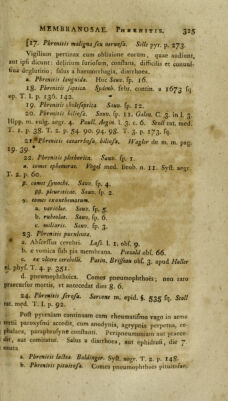 MEMBRANOSAE. PHRENITIS. 325
[17. Phrenitis maligna seu nervosa. Selle pyr. p. 273.
Vigilium pertinax cum oblivione eorum, quae audiunt,
aut ipsi dicunt: delirium furiosum, constans, difficilis et convul-
siva deglutitio; salus a haemorrhagia, diarrhoea.
a. Phrenitis languida. Huc Sauv. sp. 16.
18. Phrenitis saptica. Sydenh. febr. contin. a 1673 sq
ap. T. I. p. 136. 142.
19. Phrenitis cholesaptica. Sauv. sp. 12.
20. Phrenitis biliosa. Sauv. sp. 11. Galen. C. 3. in l. 3.
Hipp. m. vulg. aegr. 4. Paull. Aegin. l. 3. c. 6. Stoll rat. med.
T. 1. p. 38. T. 2. p. 54. 90. 94. 98. T. 3. p. 173. sq.
21. Phrenitis catarrhosa, biliosa. Wagler de m. m. pag.
19. 39.
22. Phrenitis plethorica. Sauv. sp. 1.
d. comes ephemerae. Vogel med. lieob. n. 11. Syst. aegr.
T. 2. p. 60.
β. comes synochae. Sauv. sp. 4.
ββ. pleuriticae. Sauv. sp. 2.
γ. comes exanthematum.
a. variolae. Sauv. sp. 5.
b. rubeolae. Sauv. sp. 6.
c. miliaris. Sauv. sp. 3.
23. Phrenitis purulenta.
a. Abscessus cerebri. Lass l. 1. obf. 9.
b. e vomica sub pia membrana. Pezold obf. 66.
c. ex ulcere cerebelli. Pasin, Brisseau obf. 3. apud Haller
el. phys. T. 4. p. 351.
d. pneumophthoica. Comes pneumophthoës; neu raro
praecursor mortis, et antecedat dies 8. 6.
24. Phrenitis serosa. Sarcone m. epid. §. 535 sq. Stoll
rat. med. T. I. p. 92.
Post pyreniam continuam cum rheumatismo vago in acme
mitis paroxysmi accedit, cum anodynia, agrypnia perpetua, ce-
phalaea, paraphrosyne constanti. Peripneumoniam aut praece-
dit, aut comitatur. Salus a diarrhoea, aut ephidrosi, die 7
muta.
a. Phrenitis lactea. Baldinger. Syst. aegr. T. 2. p. 148.
b. Phrenitis pituitosa. Comes pneumophthoes pituitosae.